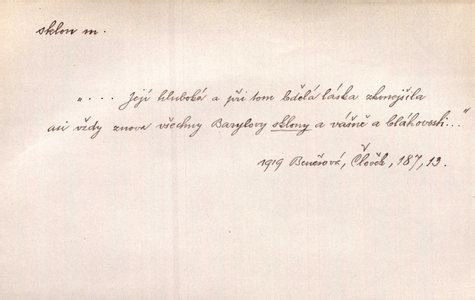 sklon m.
„... Její hluboká a při tom bdělá láska zkonejšila
asi vždy znova všechny Barylovy sklony a vášně a bláhovosti..."
1919 Benešová, Člověk, 187, 13.